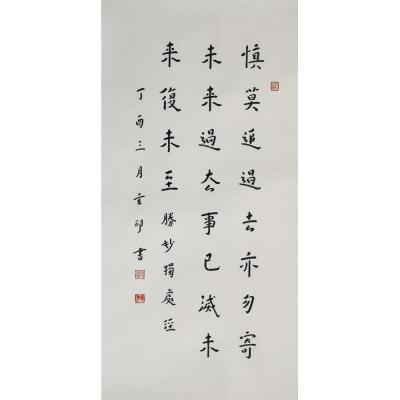 慎莫追過去亦勿寄
未来過去事已滅未
来復未至勝妙獨處經
丁酉三月玄印書